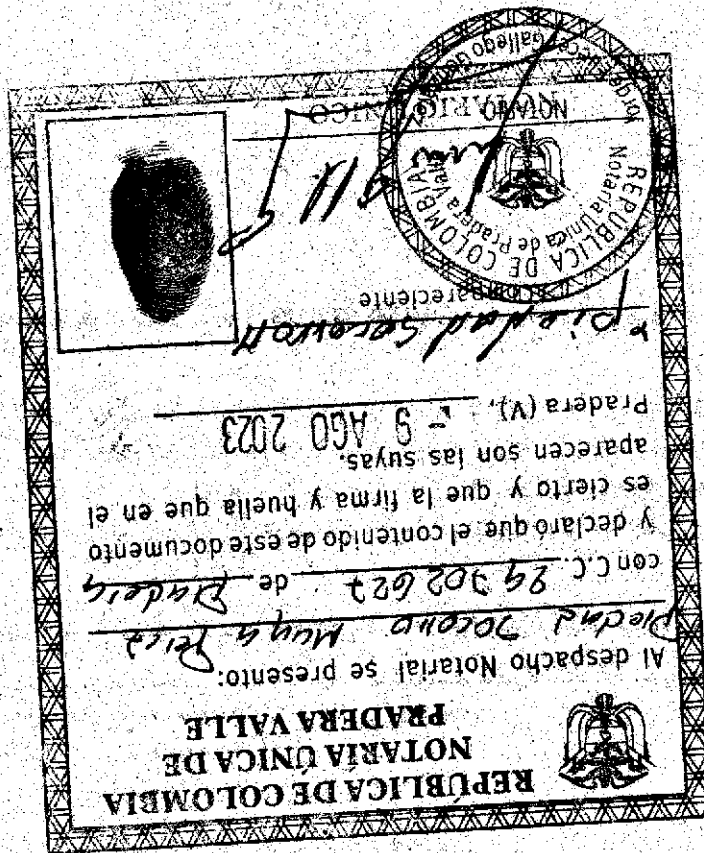 REPÚBLICA DE COLOMBIA
NOTARÍA ÚNICA DE
PRADERA VALLE
Al despacho Notarial se presento:
Piedad Socorro Muya Perez
con C.C. 29 702 627 de Pradera
y declaró que el contenido de este documento
es cierto y que la firma y huella que en el
aparecen son las suyas.
Pradera (V), - 9 AGO 2023
Piedad Socorro M
Compareciente
REPUBLICA DE COLOMBIA
Notaria Unica de Pradera Valle
NOTARIO UNICO
Gallego